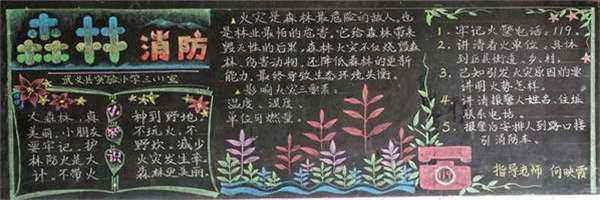 森林消防
武义县实验小学三(1)室
大森林，真
美丽，小朋友
要牢记，护
林防火是大
计。不带火
小知识
种到野地，
不玩火，不
野炊，减少
火灾发生率，
森林业美丽。
▲火灾是森林最危险的敌人，也
是林业最怕的危害。它给森林带来
毁灭性的后果，森林火灾不仅烧毁森
林，伤害动物，还降低森林的更新
能力，最终导致生态环境失衡。
▲影响火灾三要素：
温度、湿度、
单位可燃量。
1. 牢记火警电话，119。
2. 讲清着火单位，具体
到区县街道、乡、村。
3. 已知引发火灾原因的要
讲明火势怎样。
4. 讲清报警人姓名、住址
联系电话。
5. 报警后安排人到路口接
引消防车。
指导老师 何映霞